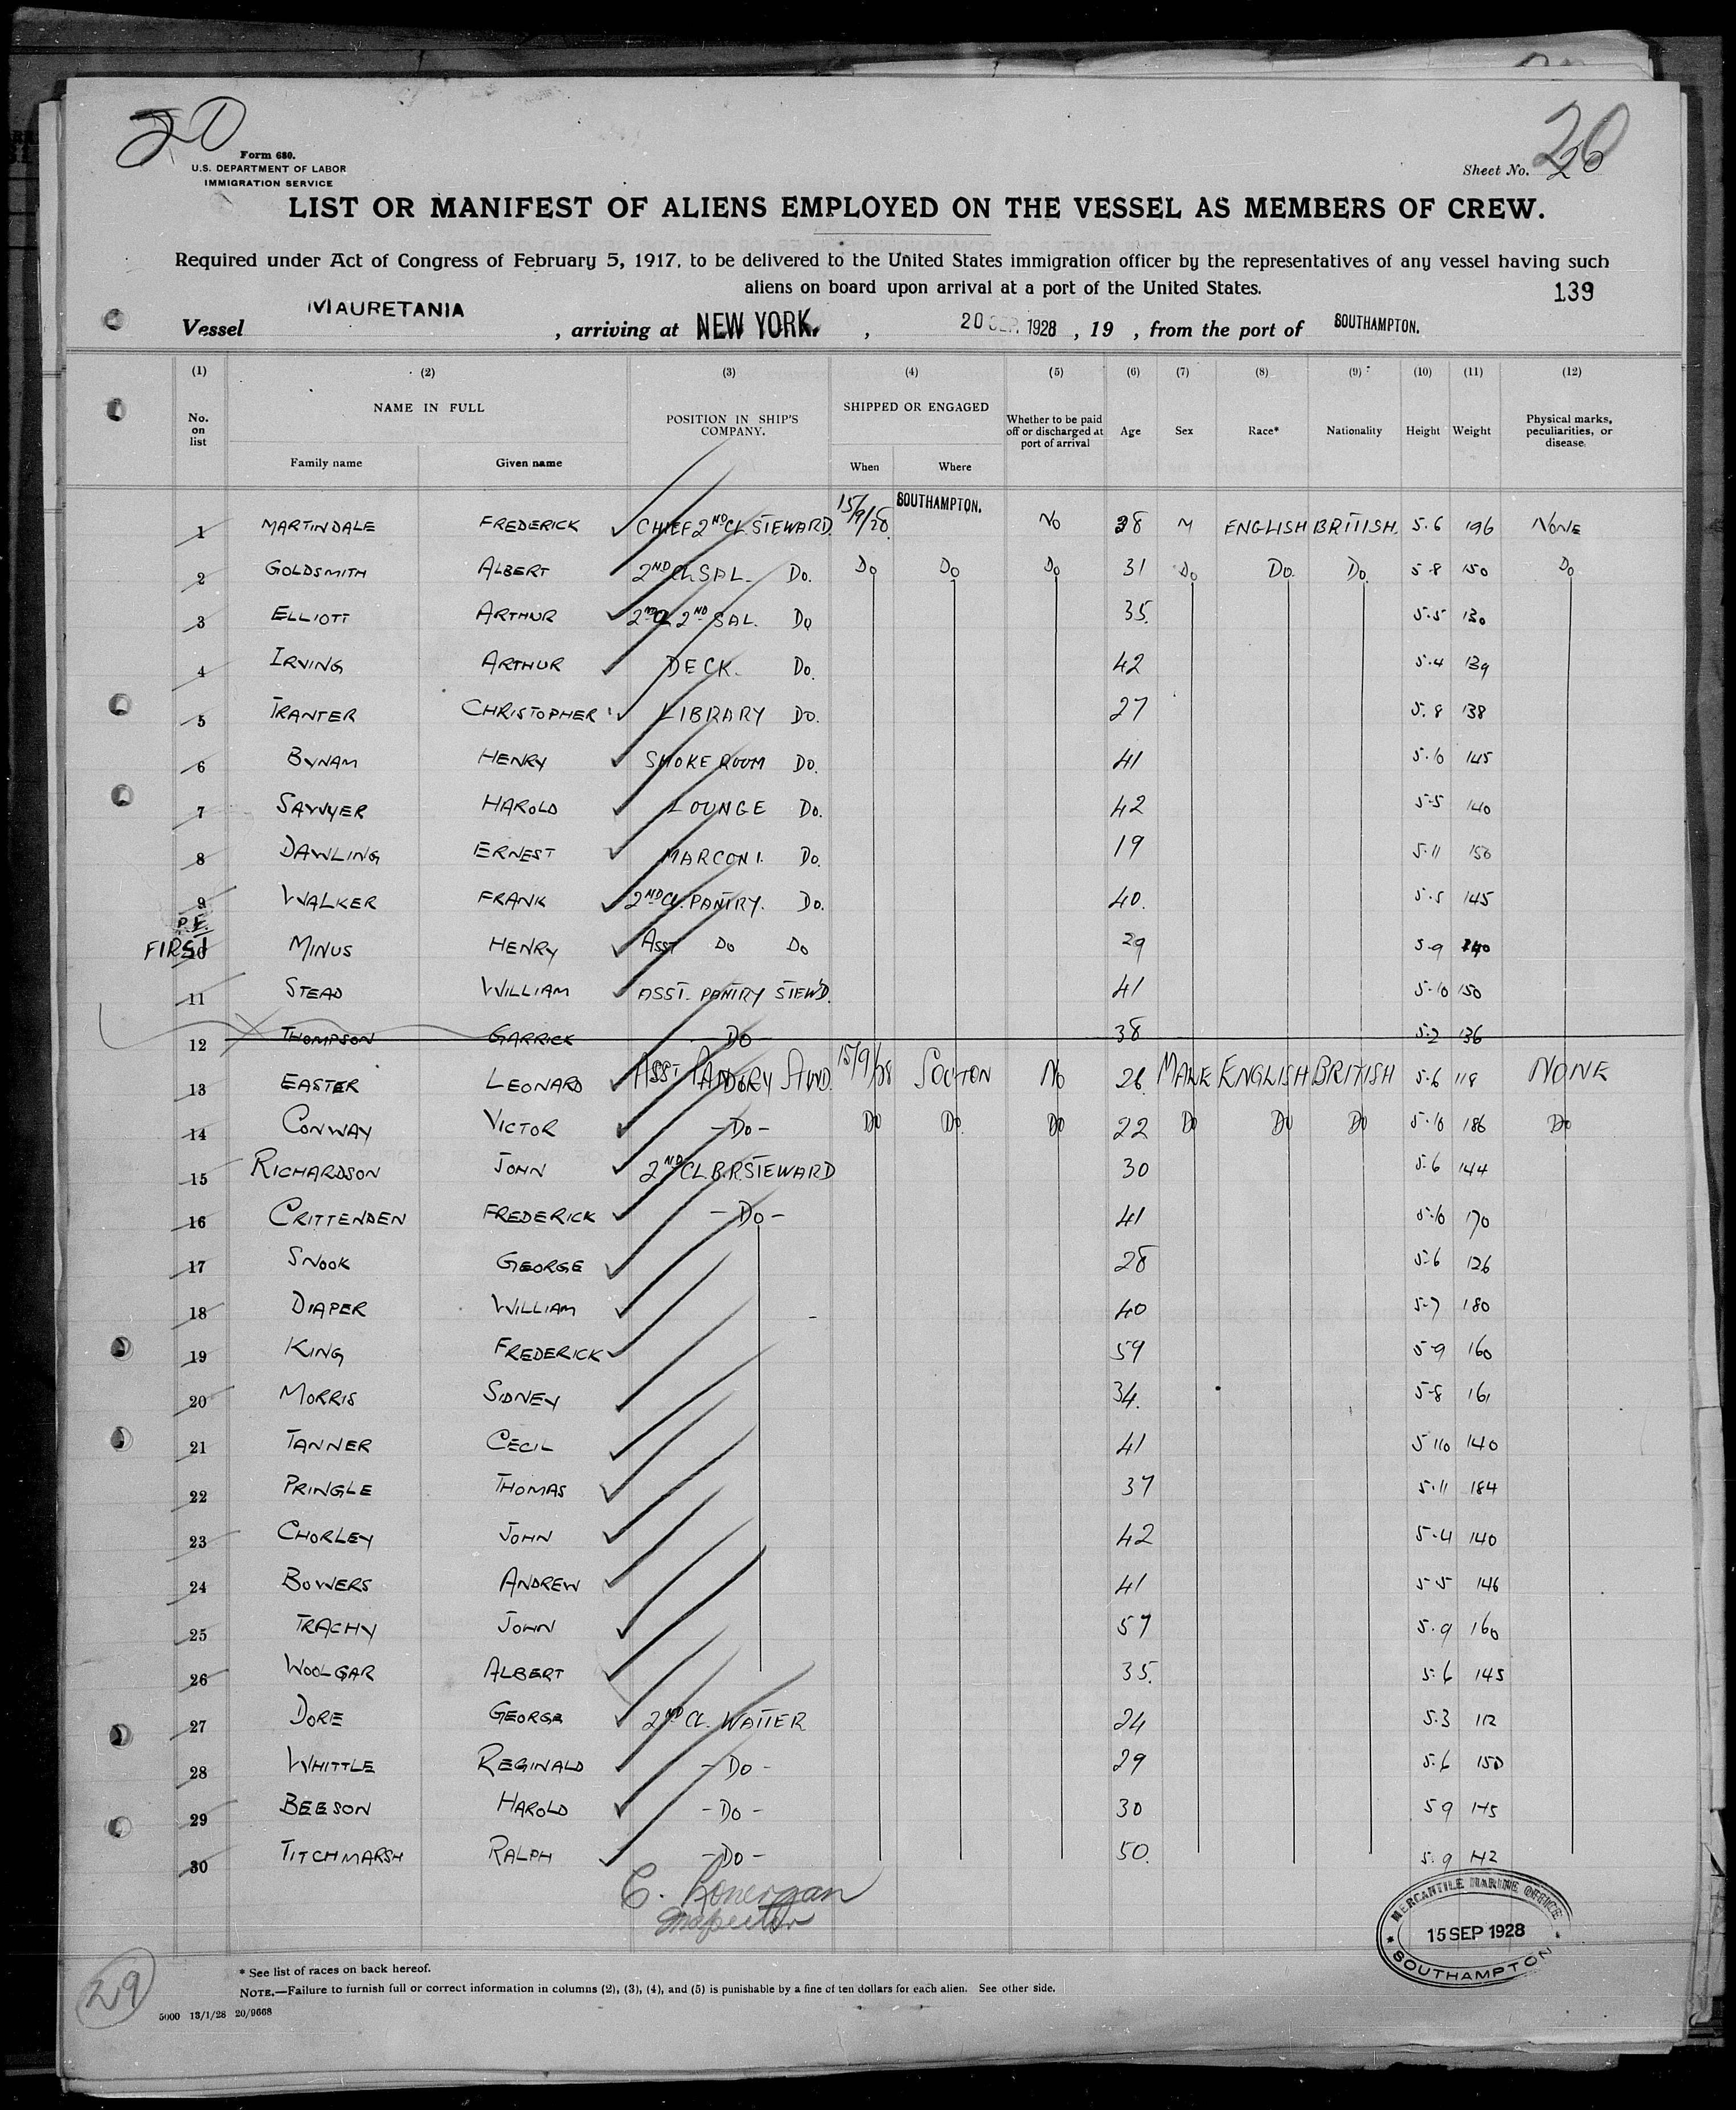 20
Form 680.
U.S. DEPARTMENT OF LABOR
IMMIGRATION SERVICE
Sheet No. 20
20
LIST OR MANIFEST OF ALIENS EMPLOYED ON THE VESSEL AS MEMBERS OF CREW.
Required under Act of Congress of February 5, 1917, to be delivered to the United States immigration officer by the representatives of any vessel having such
aliens on board upon arrival at a port of the United States.
139
Vessel MAURETANIA , arriving at NEW YORK. , 20 SEP. 1928 , 19 , from the port of SOUTHAMPTON.
(1) (2) (3) (4) (5) (6) (7) (8) (9) (10) (11) (12)
No. on list NAME IN FULL POSITION IN SHIP'S COMPANY. SHIPPED OR ENGAGED Whether to be paid off or discharged at port of arrival Age Sex Race* Nationality Height Weight Physical marks, peculiarities, or disease
Family name Given name When Where
1 MARTINDALE FREDERICK CHIEF 2ND CL. STEWARD. 15/9/28 SOUTHAMPTON. No 38 M ENGLISH BRITISH. 5.6 196 NONE
2 GOLDSMITH ALBERT 2ND CL SAL. Do. Do Do Do 31 Do Do. Do 5-8 150 Do
3 ELLIOTT ARTHUR 2ND CL 2ND SAL. Do 35. 5.5 130
4 IRVING ARTHUR DECK. Do. 42 5.4 139
5 TRANTER CHRISTOPHER LIBRARY Do. 27 5.8 138
6 BYNAM HENRY SMOKE ROOM Do. 41 5.10 145
7 SAWYER HAROLD LOUNGE Do. 42 5-5 140
8 DAWLING ERNEST MARCONI. Do. 19 5.11 150
9 WALKER FRANK 2ND CL. PANTRY. Do. 40. 5.5 145
P.E.
FIRST
10 MINUS HENRY ASST Do Do 29 5-9 140
11 STEAD WILLIAM ASST. PANTRY STEWD. 41 5-10 150
12 THOMPSON GARRICK Do 38 5-2 136
13 EASTER LEONARD ASST PANTRY STWD. 15/9/28 SOUTON No 26 MALE ENGLISH BRITISH 5-6 118 NONE
14 CONWAY VICTOR -Do- Do Do. Do 22 Do Do Do 5-10 186 Do
15 RICHARDSON JOHN 2ND CL. B.R. STEWARD 30 5.6 144
16 CRITTENDEN FREDERICK -Do- 41 5.10 170
17 SNOOK GEORGE 28 5.6 126
18 DIAPER WILLIAM 40 5-7 180
19 KING FREDERICK 59 5-9 160
20 MORRIS SIDNEY 34. 5-8 161
21 TANNER CECIL 41 5 110 140
22 PRINGLE THOMAS 37 5.11 184
23 CHORLEY JOHN 42 5.4 140
24 BOWERS ANDREW 41 5-5 146
25 TRACHY JOHN 57 5.9 160
26 WOOLGAR ALBERT 35. 5.6 145
27 DORE GEORGE 2ND CL. WAITER 24 5.3 112
28 WHITTLE REGINALD -Do- 29 5.6 150
29 BEESON HAROLD -Do- 30 5 9 145
30 TITCHMARSH RALPH -Do- 50. 5.9 142
C. Lonergan
Inspector
MERCANTILE MARINE OFFICE
15 SEP 1928
SOUTHAMPTON
29
* See list of races on back hereof.
NOTE.—Failure to furnish full or correct information in columns (2), (3), (4), and (5) is punishable by a fine of ten dollars for each alien. See other side.
5000 13/1/28 20/9668